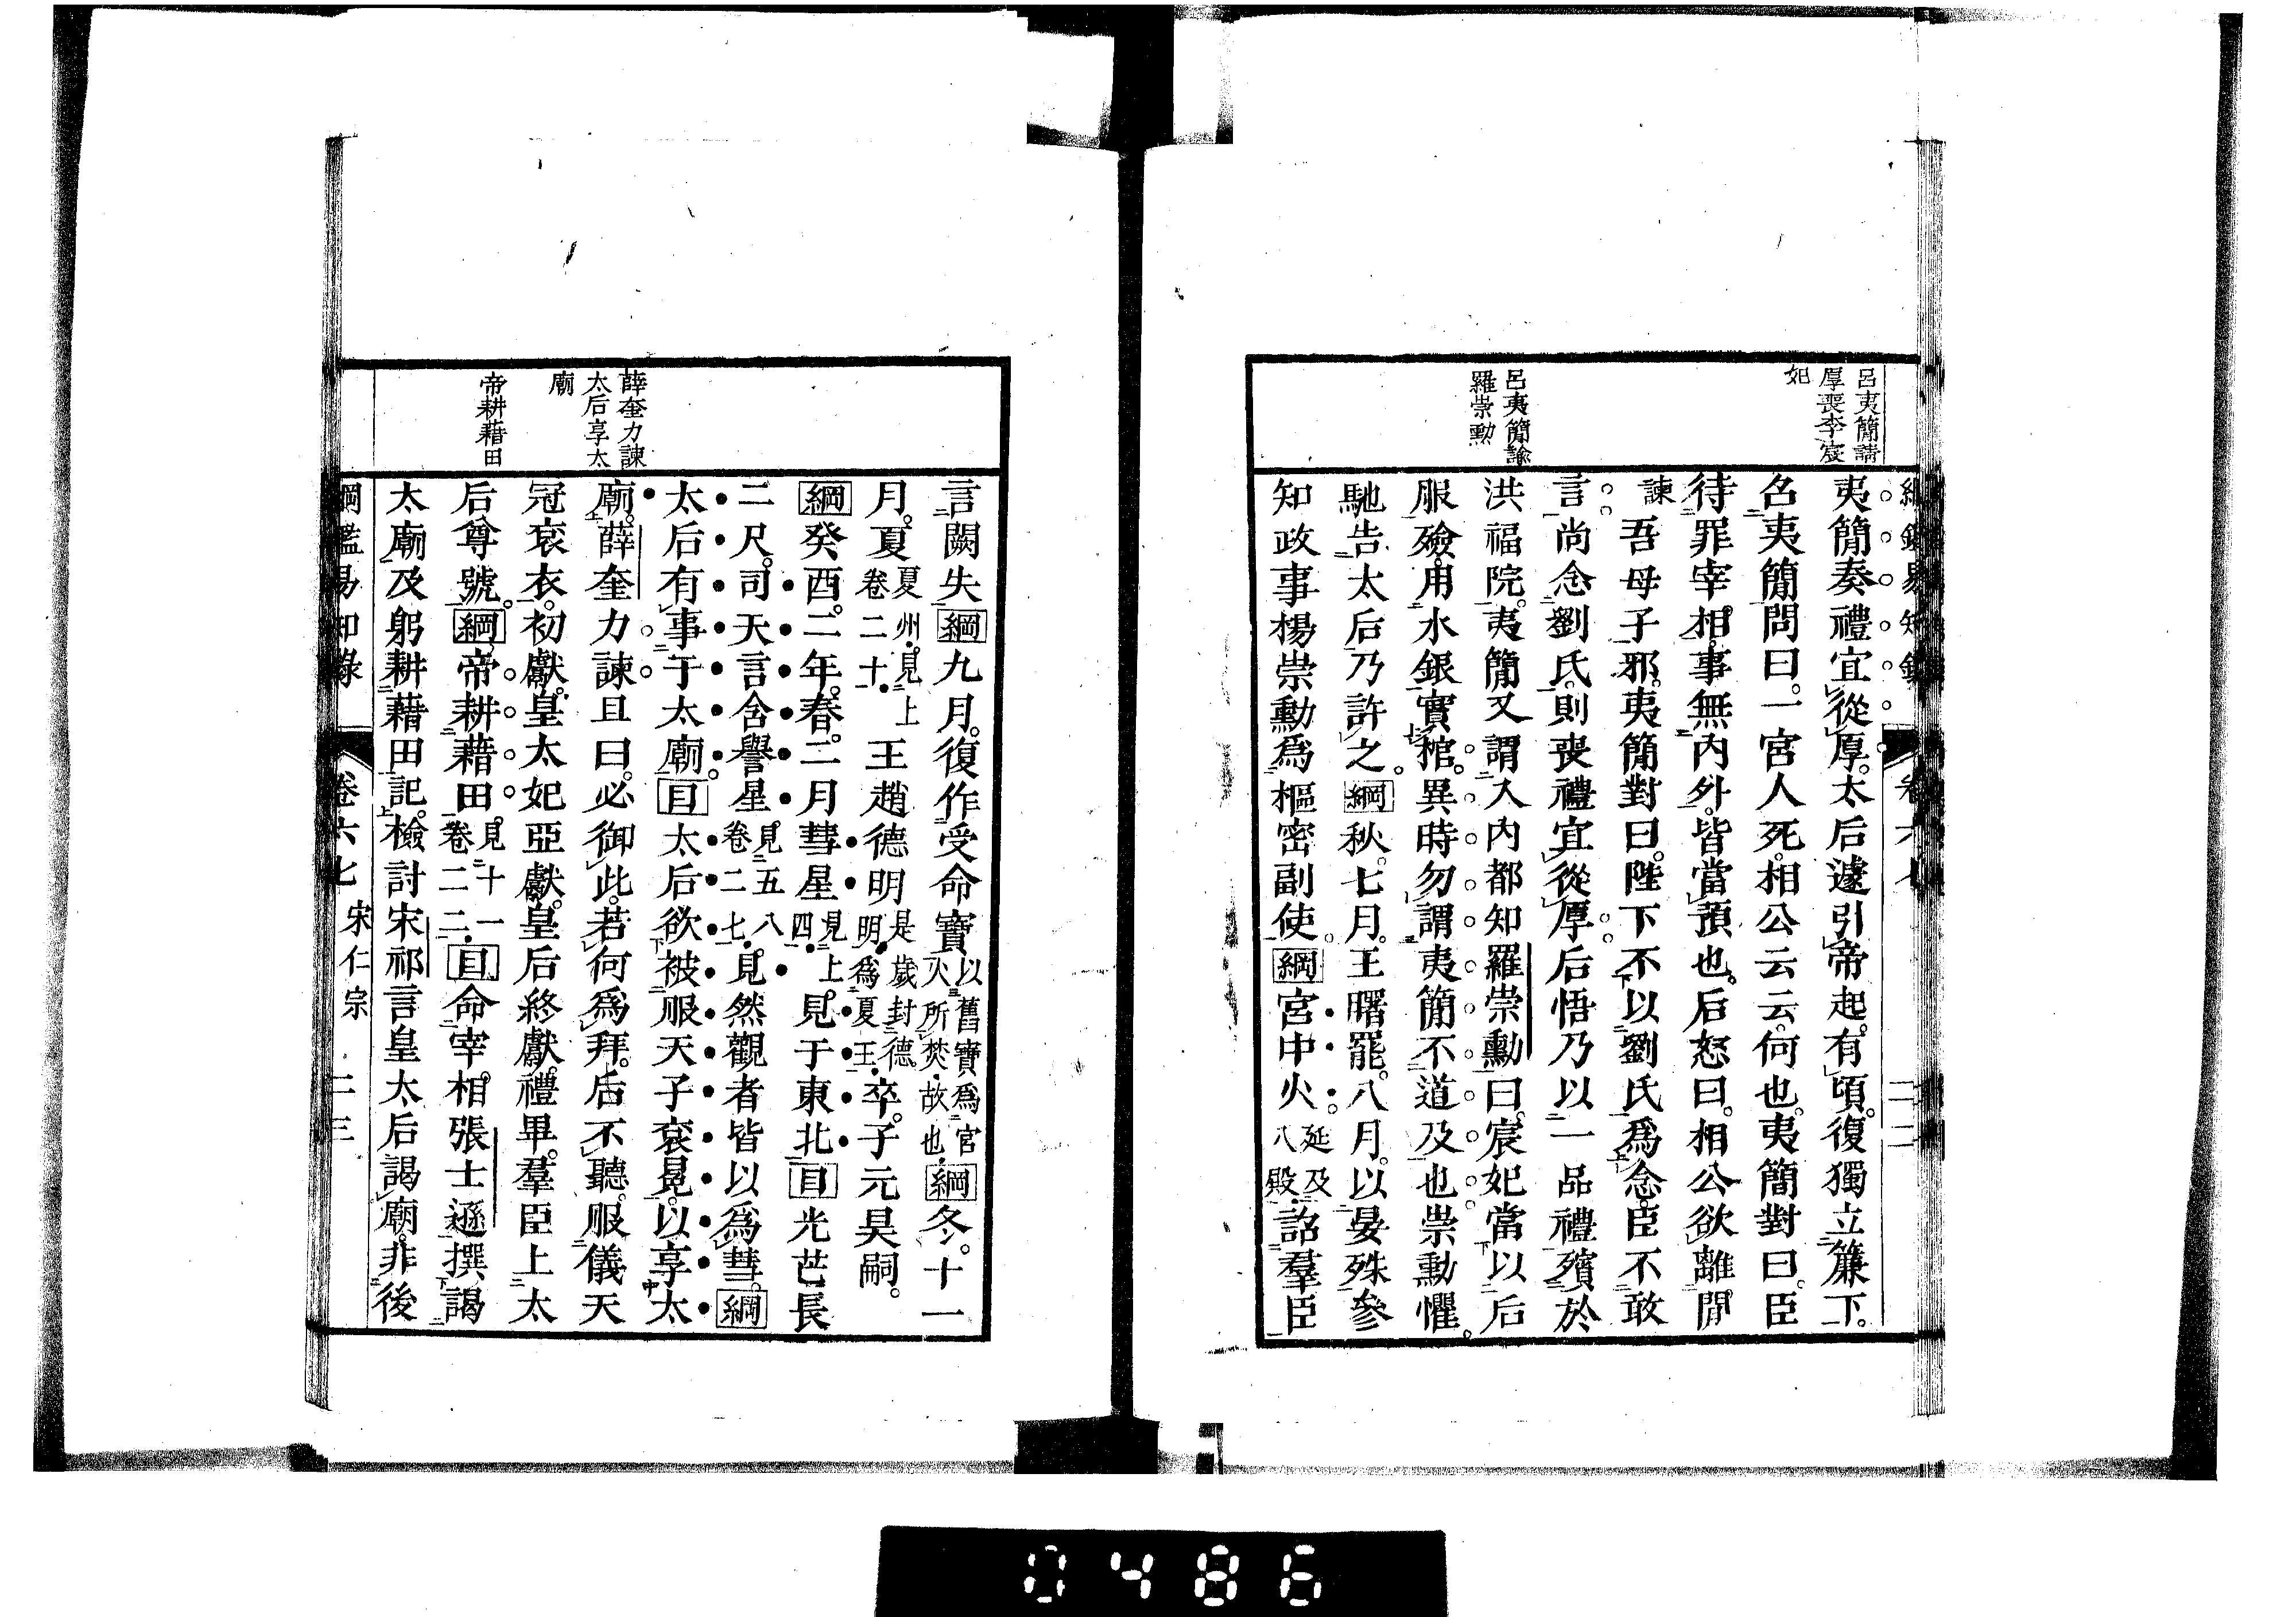 呂夷簡請
厚喪李宸
妃
呂夷簡諭
羅崇勲
夷簡奏禮宜從厚。太后遽引帝起。有頃。復獨立簾下。
召夷簡問曰。一宮人死。相公云云。何也。夷簡對曰。臣
待罪宰相。事無內外。皆當預也。后怒曰。相公欲離閒
吾母子邪。夷簡對曰。陛下不以劉氏爲念。臣不敢
諫
言。尚念劉氏。則喪禮宜從厚。后悟。乃以一品禮殯於
洪福院。夷簡又謂入內都知羅崇勳曰。宸妃當以后
服殮。用水銀實棺。異時勿謂夷簡不道及也。崇勳懼。
馳告太后。乃許之。綱秋。七月。王曙罷。八月。以晏殊參
知政事。楊崇勳爲樞密副使。綱宮中火。延及八殿。詔羣臣
薛奎力諫
太后享太
廟
帝耕藉田
言闕失綱九月。復作受命寶以舊寶爲官火所焚故也綱冬。十一
月。夏夏州見上卷二十王趙德明是歲封德明爲夏王卒。子元昊嗣。
綱癸酉。二年。春。二月彗星見上四見于東北目光芒長
二尺。司天言含譽星見五八卷二七見。然觀者皆以爲彗。綱
太后有事于太廟。目太后欲被服天子袞冕。以享太
廟。薛奎力諫且曰。必御此。若何爲拜。后不聽。服儀天
冠袞衣。初獻。皇太妃亞獻。皇后終獻。禮畢。羣臣上太
后尊號。綱帝耕藉田。見十一卷二二目命宰相張士遜撰謁
太廟及躬耕藉田記。檢討宋祁言皇太后謁廟。非後
綱鑑易知錄 卷六七 宋仁宗 二三